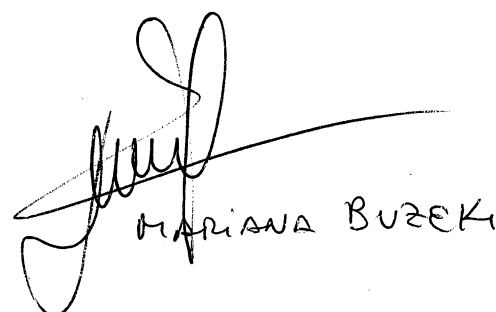 MARiANA BUZEK